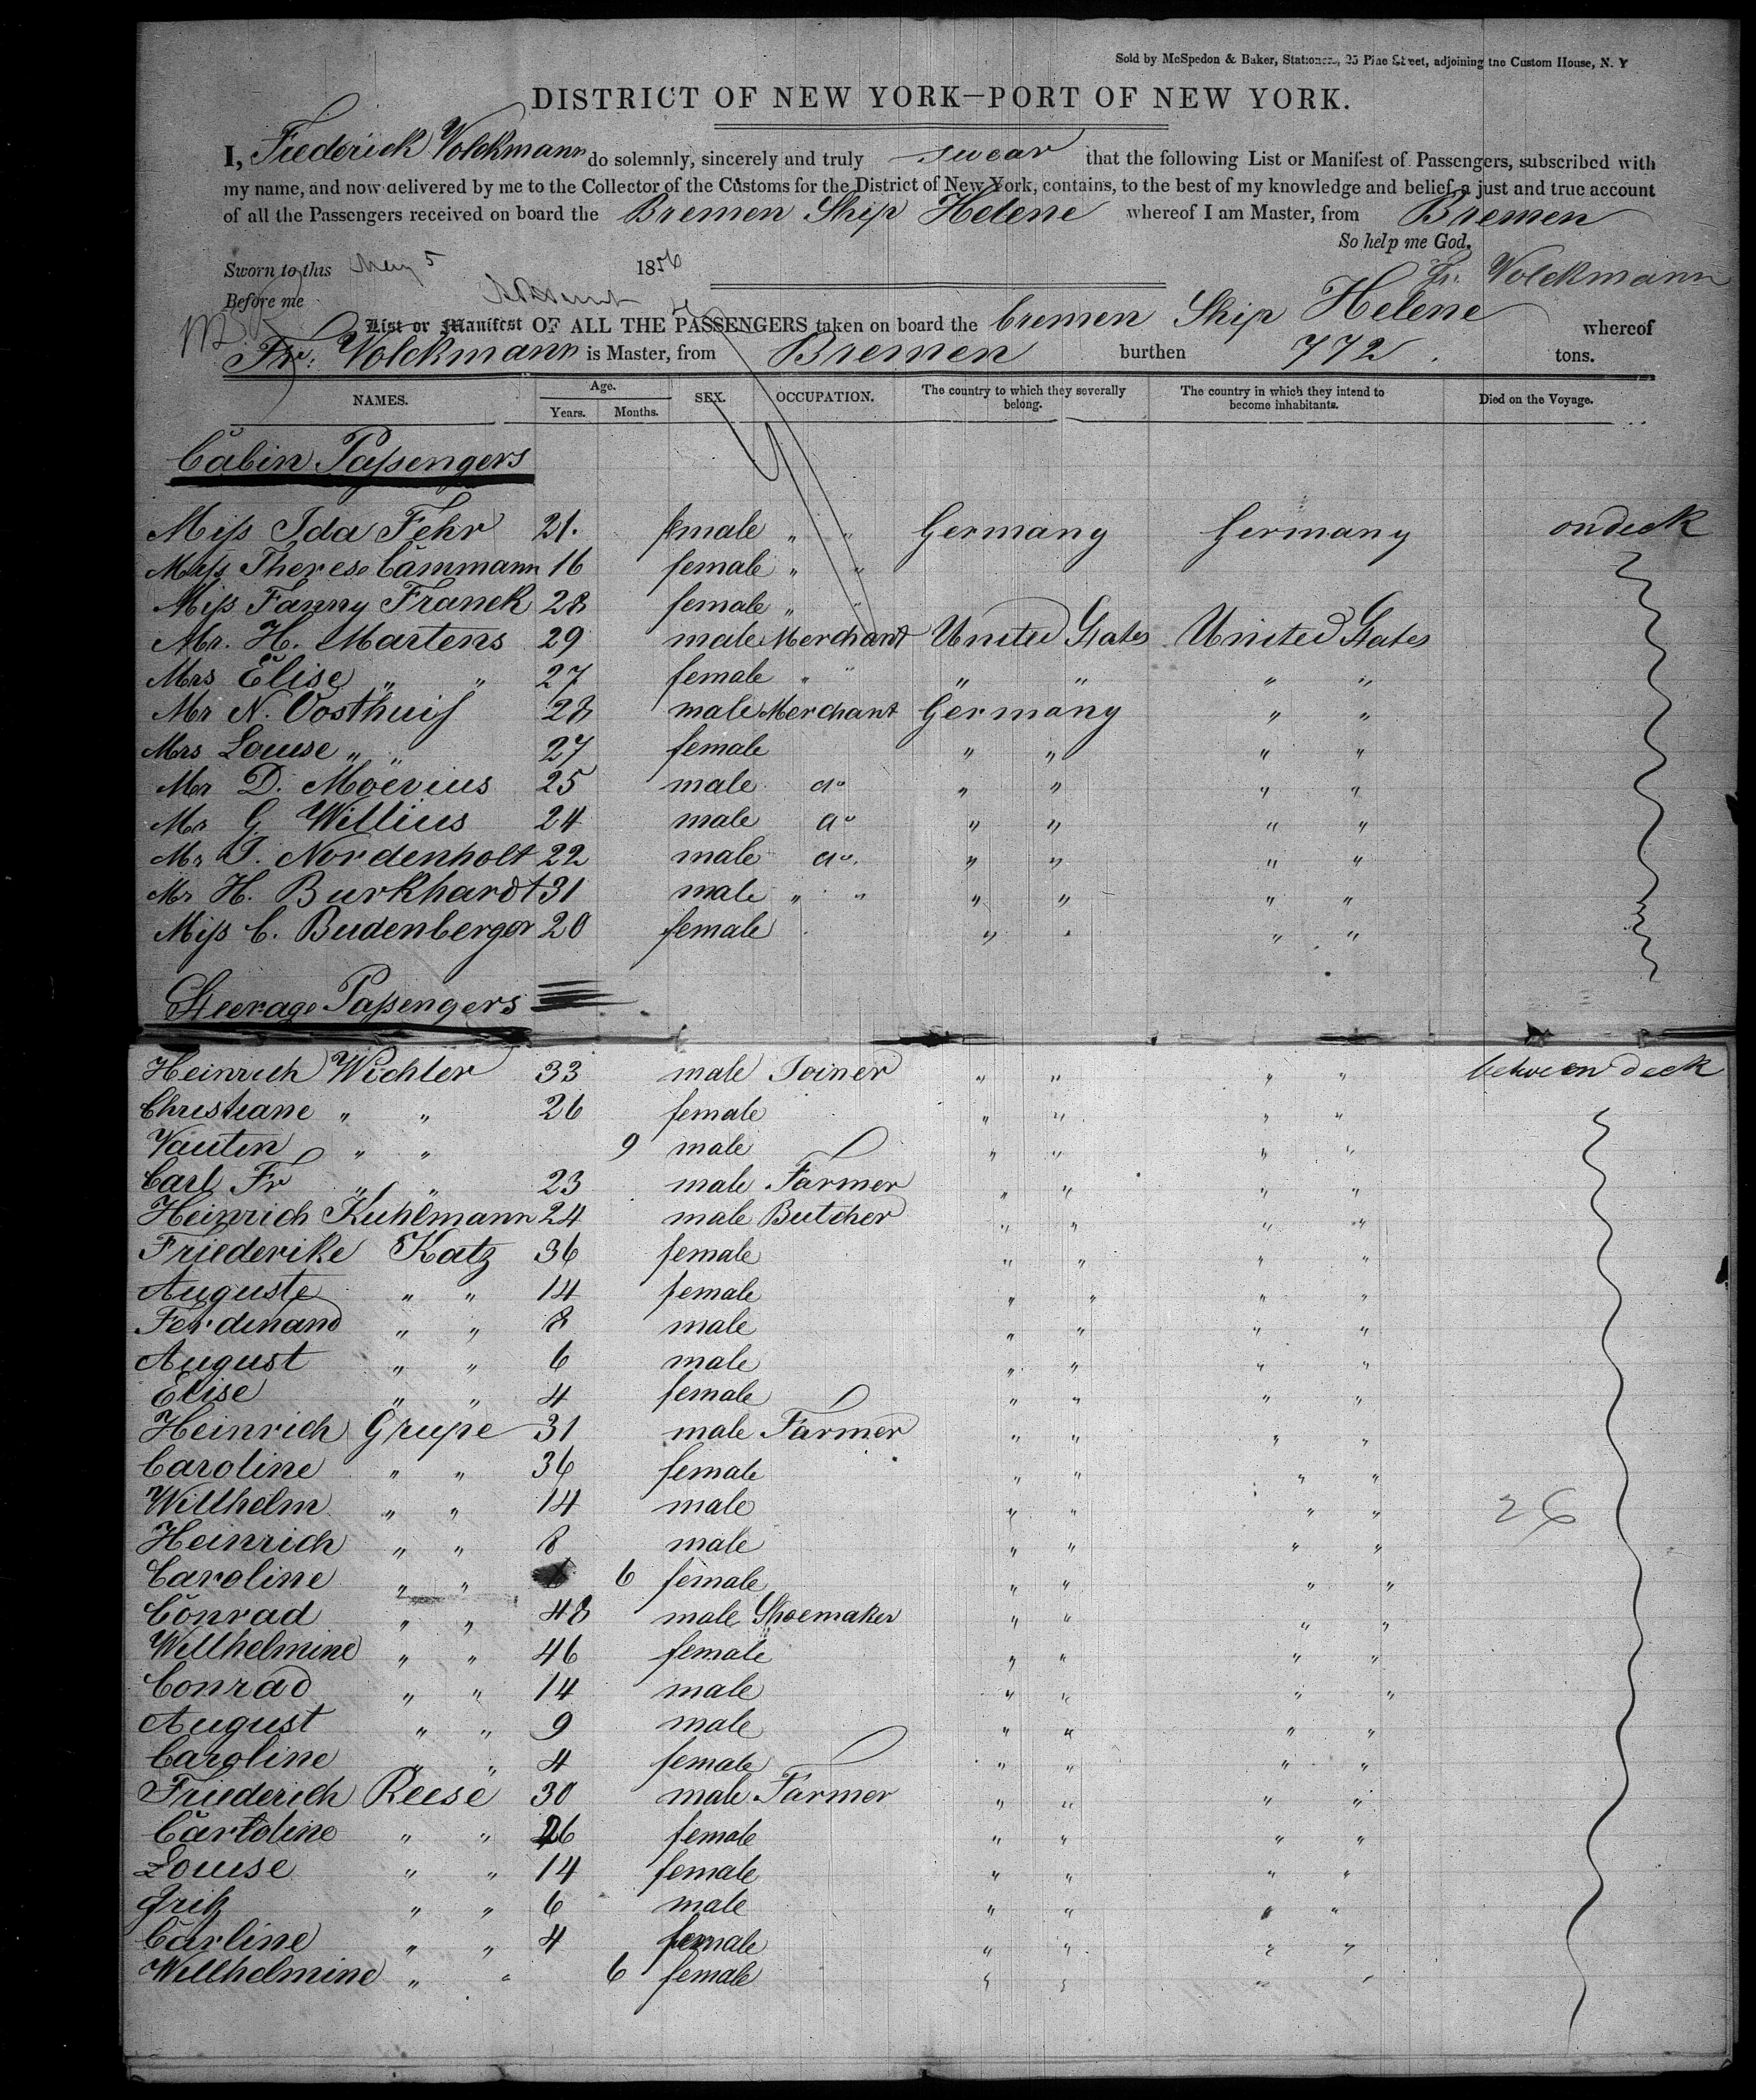 Sold by McSpedon & Baker, Stationers, 25 Pine Street, adjoining the Custom House, N. Y
DISTRICT OF NEW YORK—PORT OF NEW YORK.
I, Friederick Volckmann do solemnly, sincerely and truly swear that the following List or Manifest of Passengers, subscribed with
my name, and now delivered by me to the Collector of the Customs for the District of New York, contains, to the best of my knowledge and belief, a just and true account
of all the Passengers received on board the Bremen Ship Helene whereof I am Master, from Bremen
So help me God.
Sworn to this May 5 1856
Fr. Volckmann
Before me
List or Manifest OF ALL THE PASSENGERS taken on board the bremen Ship Helene whereof
Fr. Volckmann is Master, from Bremen burthen 772 . tons.
NAMES. Age. Years. Months. SEX. OCCUPATION. The country to which they severally belong. The country in which they intend to become inhabitants. Died on the Voyage.
Cabin Passengers
Miss Ida Fehr 21. female " " Germany Germany on deck
Miss Therese Cammann 16 female " "
Miss Fanny Franck 28 female " "
Mr. H. Martens 29 male Merchant United States United States
Mrs Elise " " 27 female " " " " " "
Mr N. Oosthuis 28 male Merchant Germany " "
Mrs Louise " " 27 female " " " "
Mr D. Moevius 25 male do " " " "
Mr G. Willius 24 male do " " " "
Mr J. Nordenholt 22 male do. " " " "
Mr H. Burkhardt 31 male " " " " " "
Miss C. Budenberger 20 female " " " "
Steerage Passengers
Heinrich Wichler 33 male Joiner " " " " between deck
Christiane " " 26 female " " " "
" " 9 male " " " "
Carl Fr " " 23 male Farmer " " " "
Heinrich Kuhlmann 24 male Butcher " " " "
Friederike Katz 36 female " " " "
Auguste " " 14 female " " " "
Ferdinand " " 8 male " " " "
August " " 6 male " " " "
Elise " " 4 female " " " "
Heinrich Grupe 31 male Farmer " " " "
Caroline " " 36 female " " " "
Willhelm " " 14 male " " " " 26
Heinrich " " 8 male " " " "
Caroline " " 6 female " " " "
Conrad " " 48 male Shoemaker " " " "
Willhelmine " " 46 female " " " "
Conrad " " 14 male " " " "
August " " 9 male " " " "
Caroline " " 4 female " " " "
Friederich Reese 30 male Farmer " " " "
Cartoline " " 26 female " " " "
Louise " " 14 female " " " "
Fritz " " 6 male " " " "
Carline " " 4 female " " " "
Willhelmine " " 6 female " " " "